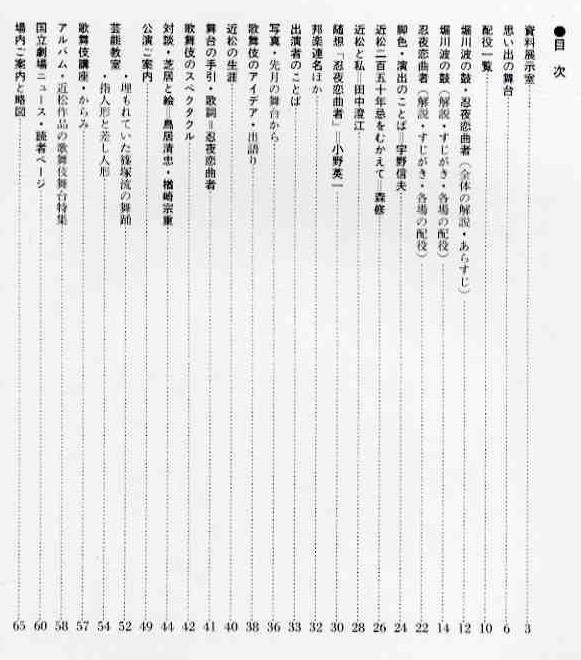 ●目次
資料展示室 3
思い出の舞台 6
配役一覧 10
堀川波の鼓・忍夜恋曲者（全体の解説・あらすじ） 12
堀川波の鼓（解説・すじがき・各場の配役） 14
忍夜恋曲者（解説・すじがき・各場の配役） 22
脚色・演出のことば＝宇野信夫 24
近松二百五十年忌をむかえて＝森修 26
近松と私＝田中澄江 28
随想「忍夜恋曲者」＝小野英一 30
邦楽連名ほか 32
出演者のことば 33
写真・先月の舞台から 36
歌舞伎のアイデア・出語り 38
近松の生涯 40
舞台の手引・歌詞＝忍夜恋曲者 41
歌舞伎のスペクタクル 42
対談・芝居と絵＝鳥居清忠・楢崎宗重 44
公演ご案内 49
芸能教室・埋もれていた篠塚流の舞踊 52
・指人形と差し人形 54
歌舞伎講座・からみ 57
アルバム・近松作品の歌舞伎舞台特集 58
国立劇場ニュース・読者ページ 60
場内ご案内と略図 65